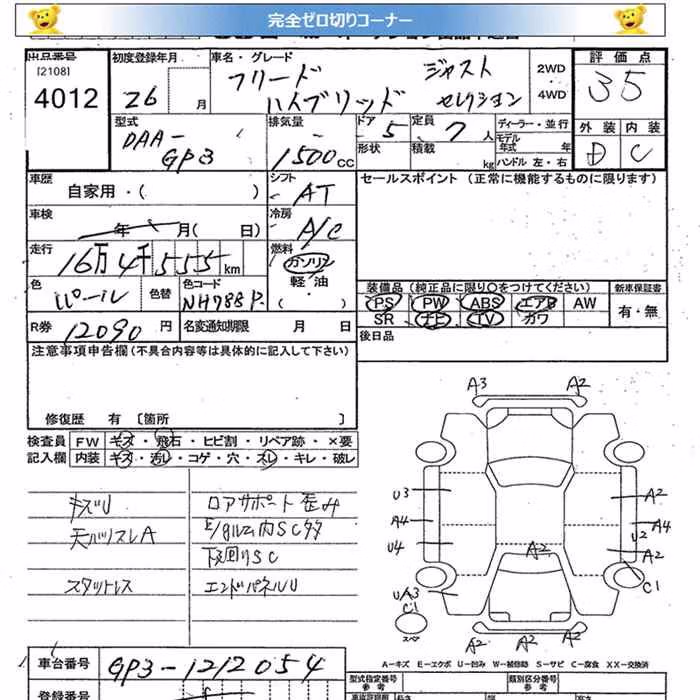 完全ゼロ切りコーナー
出品番号 初度登録年月 車名・グレード 評価点
[2108] フリード ジャスト 2WD
4012 26 月 ハイブリッド セレクション 4WD 35
型式 排気量 ドア 5 定員 7 人 ディーラー・並行 外装 内装
DAA- 1500 CC 形状 積載 kg モデル年式 年 D C
GP3 ハンドル 左・右
車歴 シフト セールスポイント (正常に機能するものに限ります)
自家用・( ) AT
車検 冷房
年 月( 日) A/C
走行 燃料
16万4千555km ガソリン
色 色替 色コード 軽油 装備品(純正品に限り○をつけてください) 新車保証書
パール NH788P ・( ) PS PW ABS エアB AW 有・無
R券 12090 円 名変通知期限 月 日 SR ナビ TV カワ
注意事項申告欄(不具合内容等は具体的に記入して下さい) 後日品
修復歴 有 [箇所 ]
検査員 FW キズ・飛石・ヒビ割・リペア跡・×要
記入欄 内装 キズ・汚レ・コゲ・穴・スレ・キレ・破レ
キズU ロアサポート歪み
天バリスレA E/gルーム内SC多
下回りSC
スタットレス エンドパネルU
A3 A2
U3 A2
A4 A4
U2
U4 A2 A2
UA3 C1
C1
スペア A2 A2 A2
A=キズ E=エクボ U=凹み W=補修跡 S=サビ C=腐食 XX=交換済
車台番号 GP3-1212054 型式指定番号 類別区分番号
参考 参考
登録番号 長さ